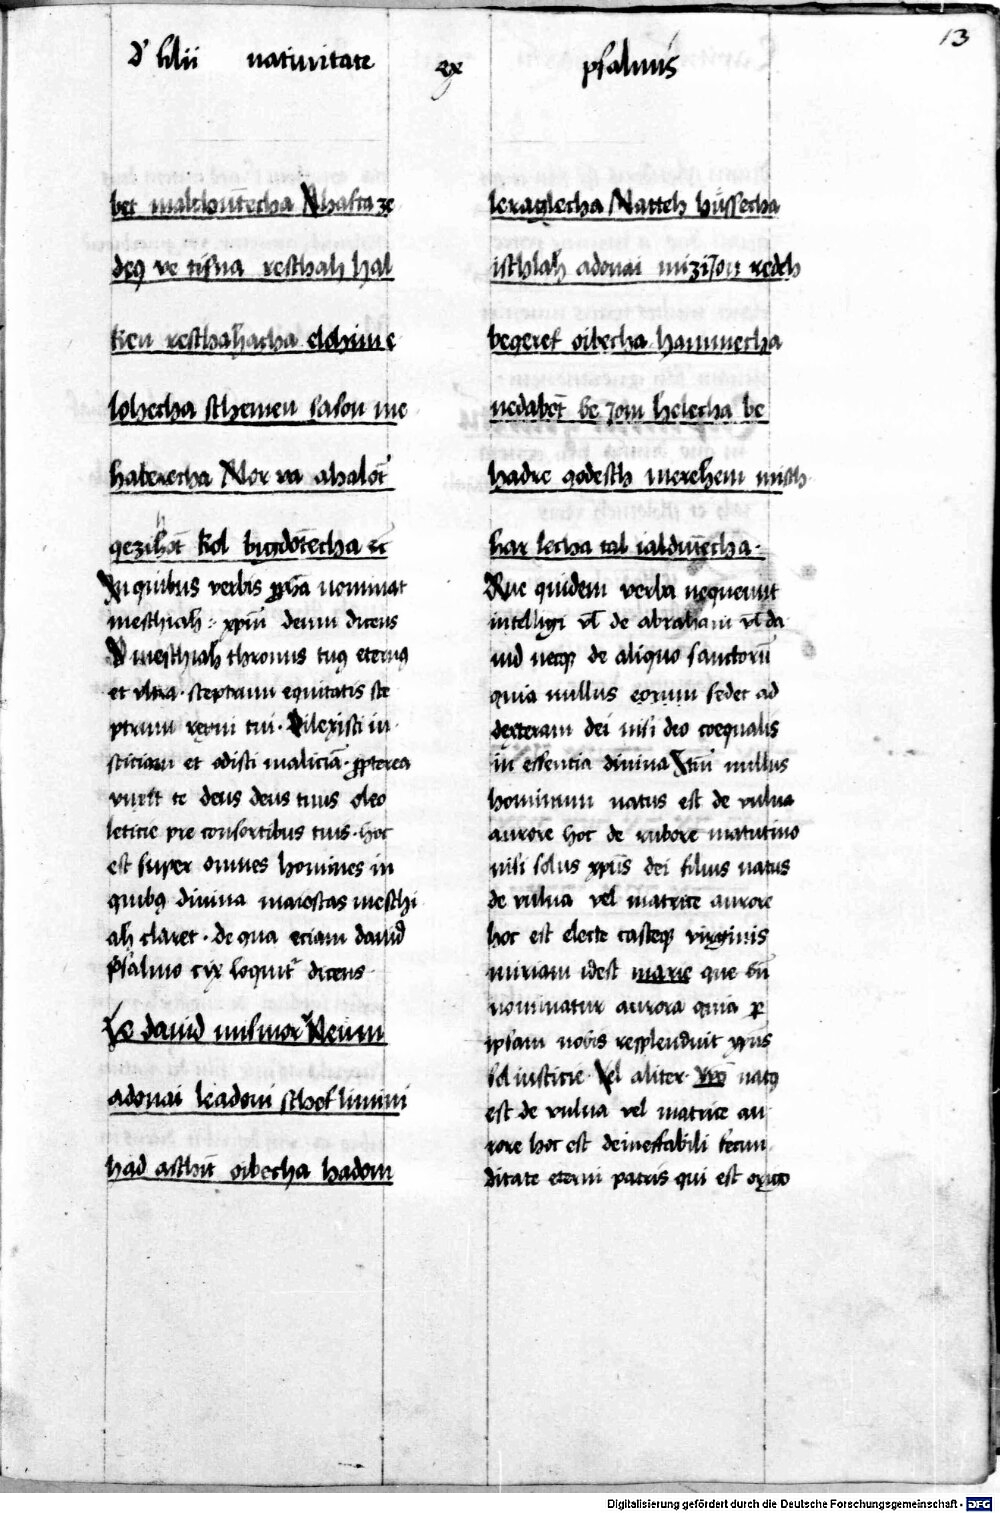 13
d' filii natiuitate ex psalmis
bet malchutecha Ahafta ze
deq ve tisna resthah hal
ken resthahacha elohim e
lohecha sthemen sason me
haberecha Mor va ahalot
qezihot kol bigdotecha et
In quibus verbis ppha nominat
mesthiah : xpm deum dicens
O mesthiah thronus tuus eternus
et vltra · sceptrum equitatis sce
ptrum regni tui · Dilexisti iu
sticiam et odisti maliciam · propterea
vnxit te deus deus tuus oleo
leticie pre consortibus tuis · hoc
est super omnes homines in
quibus diuina maiestas meschi
ah claret · de qua eciam dauid
psalmo cix loquitur dicens
Le dauid mismor Neum
adonai leadoni sthef limini
had asthit oibecha hadom
leraglecha Matteh hussecha
isthlah adonai mizijon redeh
beqeref oibecha hammecha
nedabot be jom helecha be
hadre qodesth merehem misth
har lecha tal ialdutecha ·
Que quidem verba nequeunt
intelligi vl de abraham vl da
uid neque de aliquo sanctorum
quia nullus eorum sedet ad
dexteram dei nisi deo coequalis
in essentia diuina Item nullus
hominum natus est de vulua
aurore hoc de rubore matutino
nisi solus xpus dei filius natus
de vulua vel matrice aurore
hoc est electe casteque virginis
miriam idest marie que bn
nominatur aurora quia per
ipsam nobis resplenduit xpus
sol iusticie · Vel aliter xpo natus
est de vulua vel matrice au
rore hoc est deineffabili fecun
ditate eterni patris qui est origo
Digitalisierung gefördert durch die Deutsche Forschungsgemeinschaft - DFG